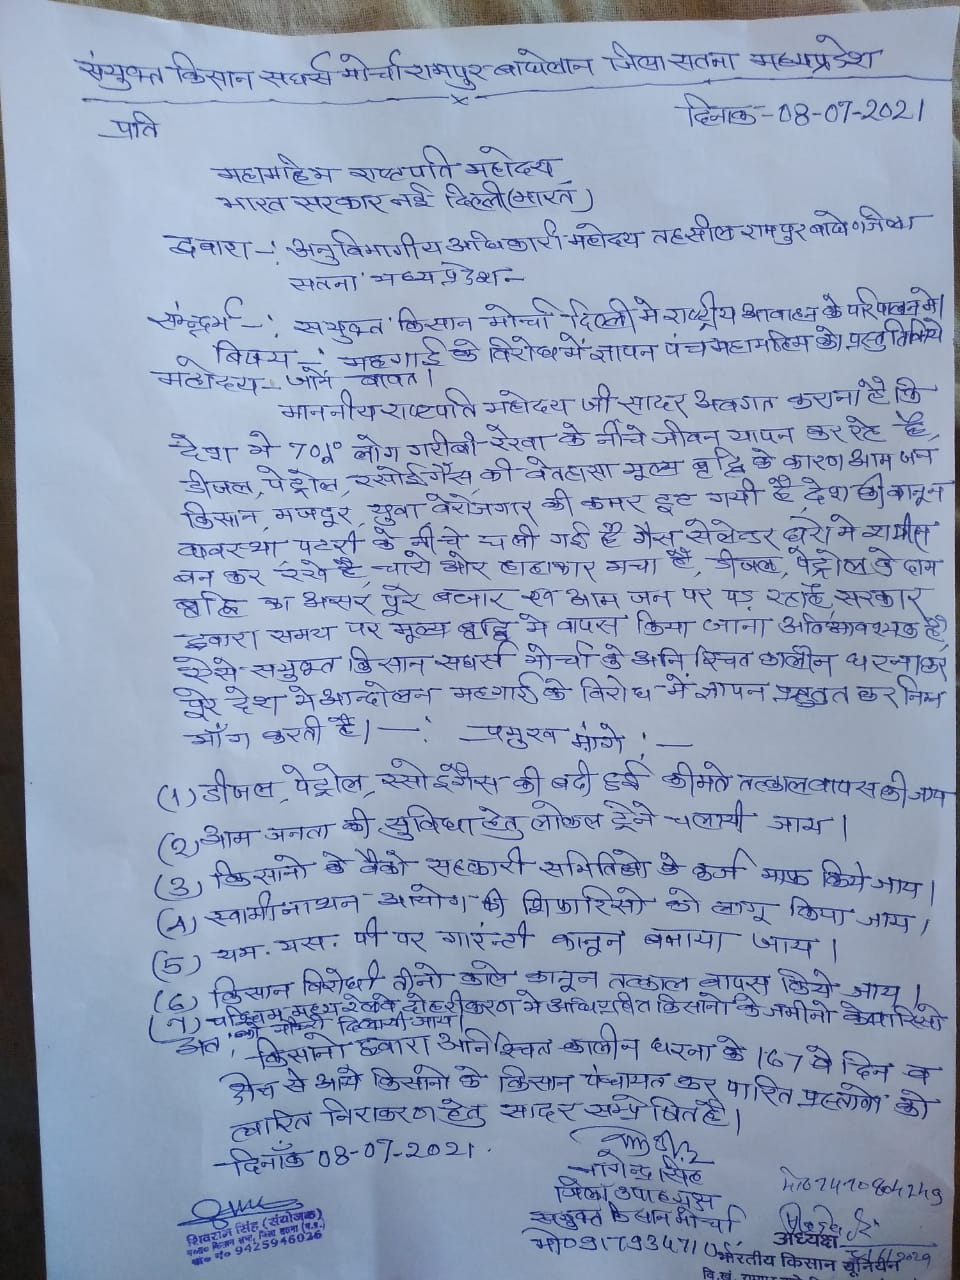 संयुक्त किसान सघर्स मोर्चा रामपुर बाघेलान जिला सतना मध्यप्रदेश
दिनांक -08-07-2021
प्रति
महामहिम राष्ट्रपति महोदय
भारत सरकार नई दिल्ली (भारत)
द्वारा -: अनुविभागीय अधिकारी महोदय तहसील रामपुर बाघे० जिला
सतना मध्य प्रदेश -
संन्दर्भ -: सयुक्त किसान मोर्चा दिल्ली मे राष्ट्रीय आवाहन के परिपालन मे।
विषय -: महगाई के विरोध में ज्ञापन पंच महामहिम को प्रस्तुत किये
महोदय - जाने बावत।
माननीय राष्टपति महोदय जी सादर अवगत कराना है कि
देश मे 70% लोग गरीबी रेखा के नीचे जीवन यापन कर रहे है,
डीजल, पेट्रोल, रसोई गैस की बेतहासा मूल्य बृद्धि के कारण आम जन
किसान, मजदूर, युवा बेरोजगार की कमर टूट गयी है, देश की कानून
व्यवस्था पटरी के नीचे चली गई है गैस सेलेन्डर घरो मे शोपीस
बन कर रखे है, चारो ओर हाहाकार मचा है, डीजल, पेट्रोल के दाम
बृद्धि का असर पूरे बजार एवं आम जन पर पड़ रहा है, सरकार
द्वारा समय पर मूल्य बृद्धि मे वापस किया जाना अतिआवश्यक है,
ऐसे सयुक्त किसान सघर्स मोर्चा के अनिश्चित कालीन धरना कर
पूरे देश मे आन्दोलन महगाई के विरोध में ज्ञापन प्रस्तुत कर निम्न
माँग करती है। -: प्रमुख मांगे :-
(1) डीजल, पेट्रोल, रसोई गैस की बढी हुई कीमते तत्काल वापस की जाय
(2) आम जनता की सुविधा हेतु लोकल ट्रेने चलायी जाय।
(3) किसानो के बैको सहकारी समितियो के कर्ज माफ किये जाय।
(4) स्वामीनाथन आयोग की सिफारिसो को लागू किया जाय।
(5) यम. यस. पी पर गारंन्टी कानून बनाया जाय।
(6) किसान विरोधी तीनो काले कानून तत्काल वापस किये जाय।
(7) पश्चिम मध्य रेलवे दोहरीकरण मे अधिग्रहित किसानो के जमीनो के वारिसो
को नौकरी दिलायी जाय।
अतः किसानो द्वारा अनिश्चित कालीन धरना के 167 वे दिन व
क्षेत्र से आये किसानो के किसान पंचायत कर पारित प्रस्तावो को
त्वरित निराकरण हेतु सादर सम्प्रेषित है।
दिनाँक 08-07-2021.
नागेन्द्र सिंह
जिला उपाध्यक्ष
सयुक्त किसान मोर्चा
शिवराज सिंह (संयोजक)
मो० नं० 9425946026
अध्यक्ष
भारतीय किसान यूनियन